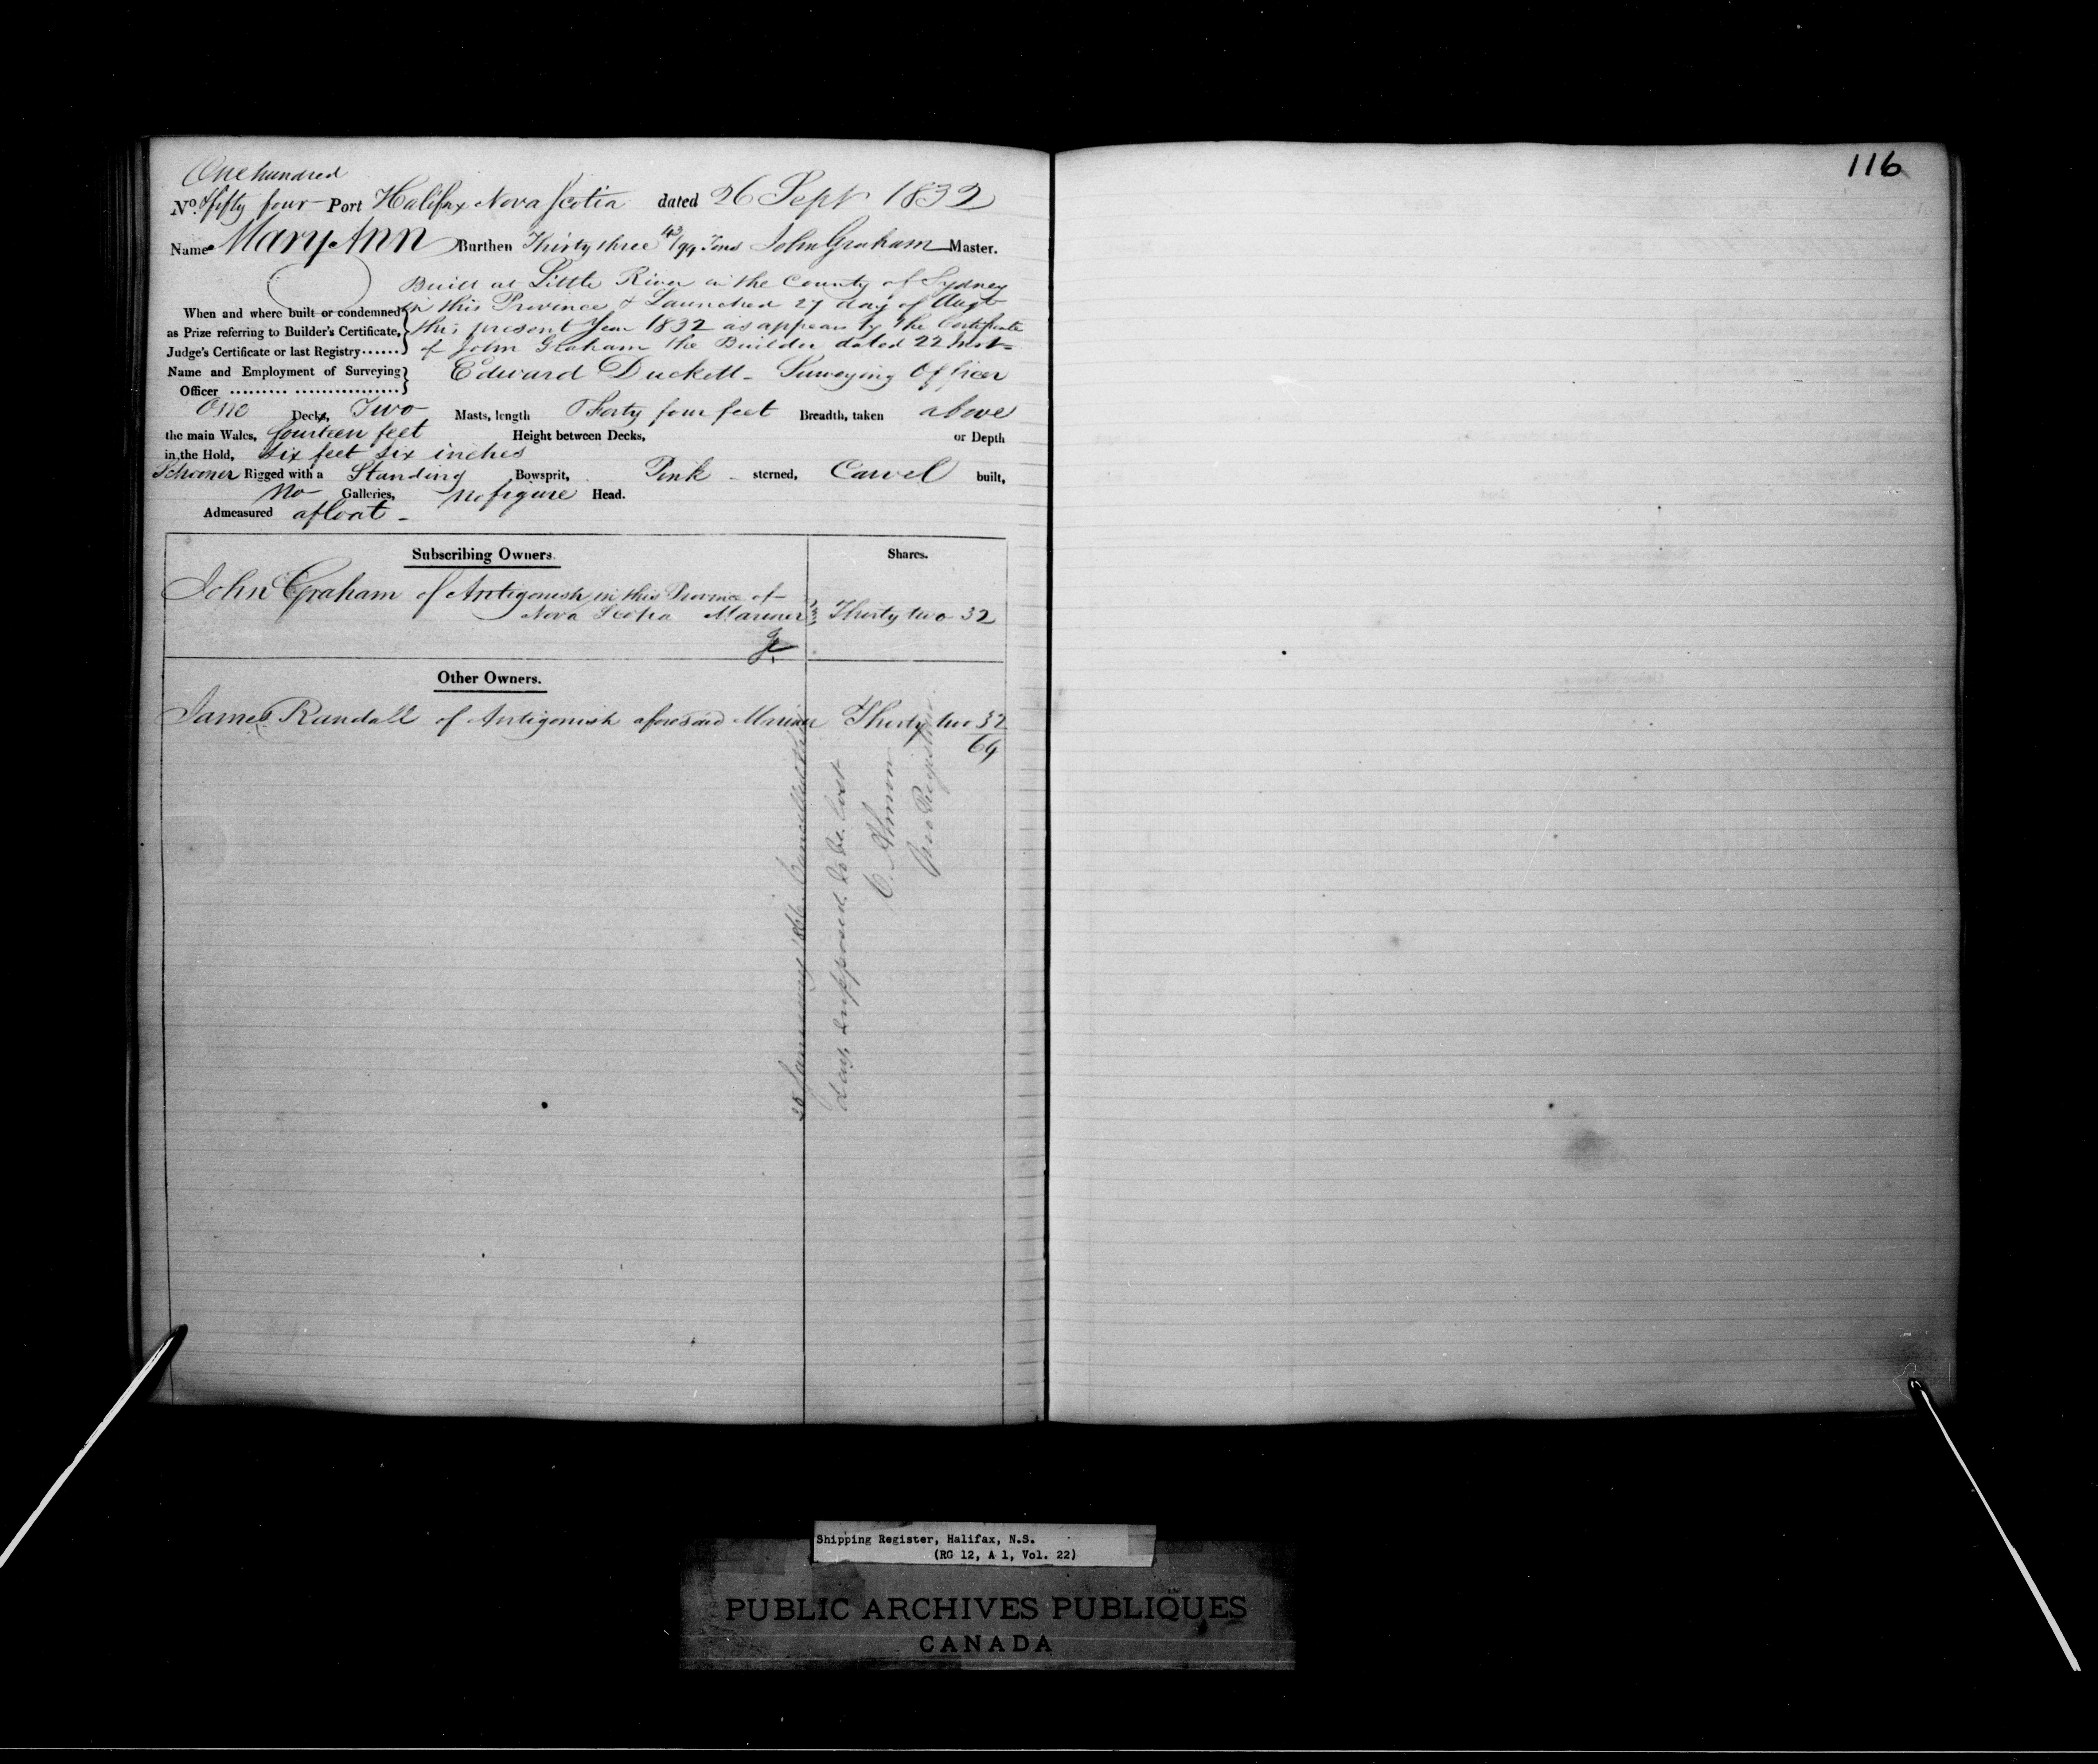 One hundred
No. & fifty four Port Halifax Nova Scotia dated 26 Sept 1832
Name Mary Ann Burthen Thirty three 43/94 Tons John Graham Master.
Built at Little River in the County of Sydney
When and where built or condemned in this Province & Launched 27 day of Augt
as Prize referring to Builder's Certificate, this present Year 1832 as appears by the Certificate
Judge's Certificate or last Registry...... of John Graham the Builder dated 22 Inst
Name and Employment of Surveying Edward Duckett - Surveying Officer
Officer ......... ................
One Decks, Two Masts, length Thirty four feet Breadth, taken above
the main Wales, fourteen feet Height between Decks, or Depth
in the Hold, Six feet six inches
Schooner Rigged with a Standing Bowsprit, Pink sterned, Carvel built,
No Galleries, No figure Head.
Admeasured afloat -
Subscribing Owners. Shares.
John Graham of Antigonish in this Province of
Nova Scotia Mariner Thirty two 32
Other Owners.
James Randall of Antigonish aforesaid Mariner Thirty two 32
64
January Cancelled this
day, supposed to be lost
C. Almon
Registrar
116
Shipping Register, Halifax, N.S.
(RG 12, A 1, Vol. 22)
PUBLIC ARCHIVES PUBLIQUES
CANADA